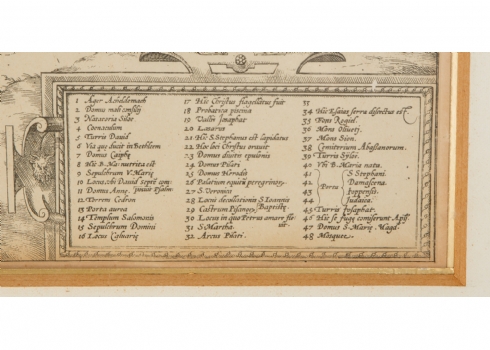 1 Ager Acheldemach
2 Domus mali consilij
3 Natatoria Siloe.
4 Coenaculum
5 Turris David
6 Via que ducit in Bethlem
7 Domus Caiphę
8 Hic B. Ma: nutrita est
9 Sepulchrum V. Marię
10 Locus, ubi David septē com:
11 Domus Annę,
12 Torrens Cedron
13 Porta aurea
14 Templum Salomonis
15 Sepulchrum Domini
16 Locus Calvarię
17 Hic Christus flagellatus fuit
18 Probatica piscina
19 Vallis Iosaphat
20 Lazarus
21 Hic S. Stephanus est lapidatus
22 Hoc loci Christus oravit
23 Domus divitis epulonis
24 Domus Pilati
25 Domus Herodis
26 Palatium equitū peregrinor,
27 S. Veronica
28 Locus decollationis S. Ioannis
Baptistę
29 Castrum Pisanor,
30 Locus in quo Petrus amare fle
vit
31 S. Martha
32 Arcus Pilati.
33
34 Hic Esaias serra dissectus est
35 Fons Rogiel.
36 Mons Oliveti,
37 Mons Sion.
38 Cemiterium Abassianorum.
39 Turris Syloe.
40 Vbi B. Maria nata.
41 S. Stephani.
42 Damascena.
Porta
43 Ioppensis.
44 Iudaica.
45 Turris Iosaphat.
46 Hic se fuge comiserunt Aposͭ
47 Domus S. Marię Magd
48 Mosquee.